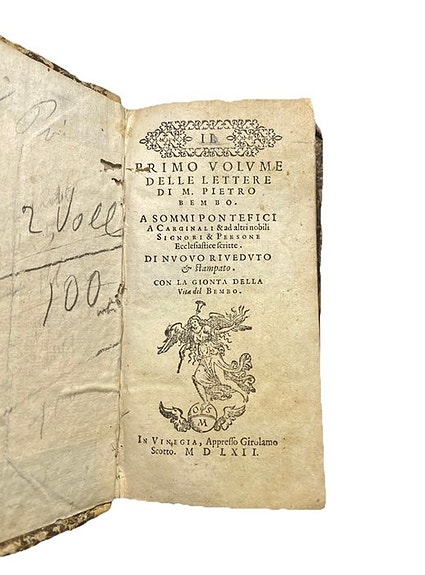 2 Voll
100
IL
PRIMO VOLVME
DELLE LETTERE
DI M. PIETRO
BEMBO.
A SOMMI PONTEFICI
A CARGINALI & ad altri nobili
SIGNORI & PERSONE
Ecclesiastice scritte.
DI NVOVO RIVEDVTO
& stampato.
CON LA GIONTA DELLA
Vita del BEMBO.
O S
M
IN VINEGIA, Appresso Girolamo
Scotto. M D LXII.